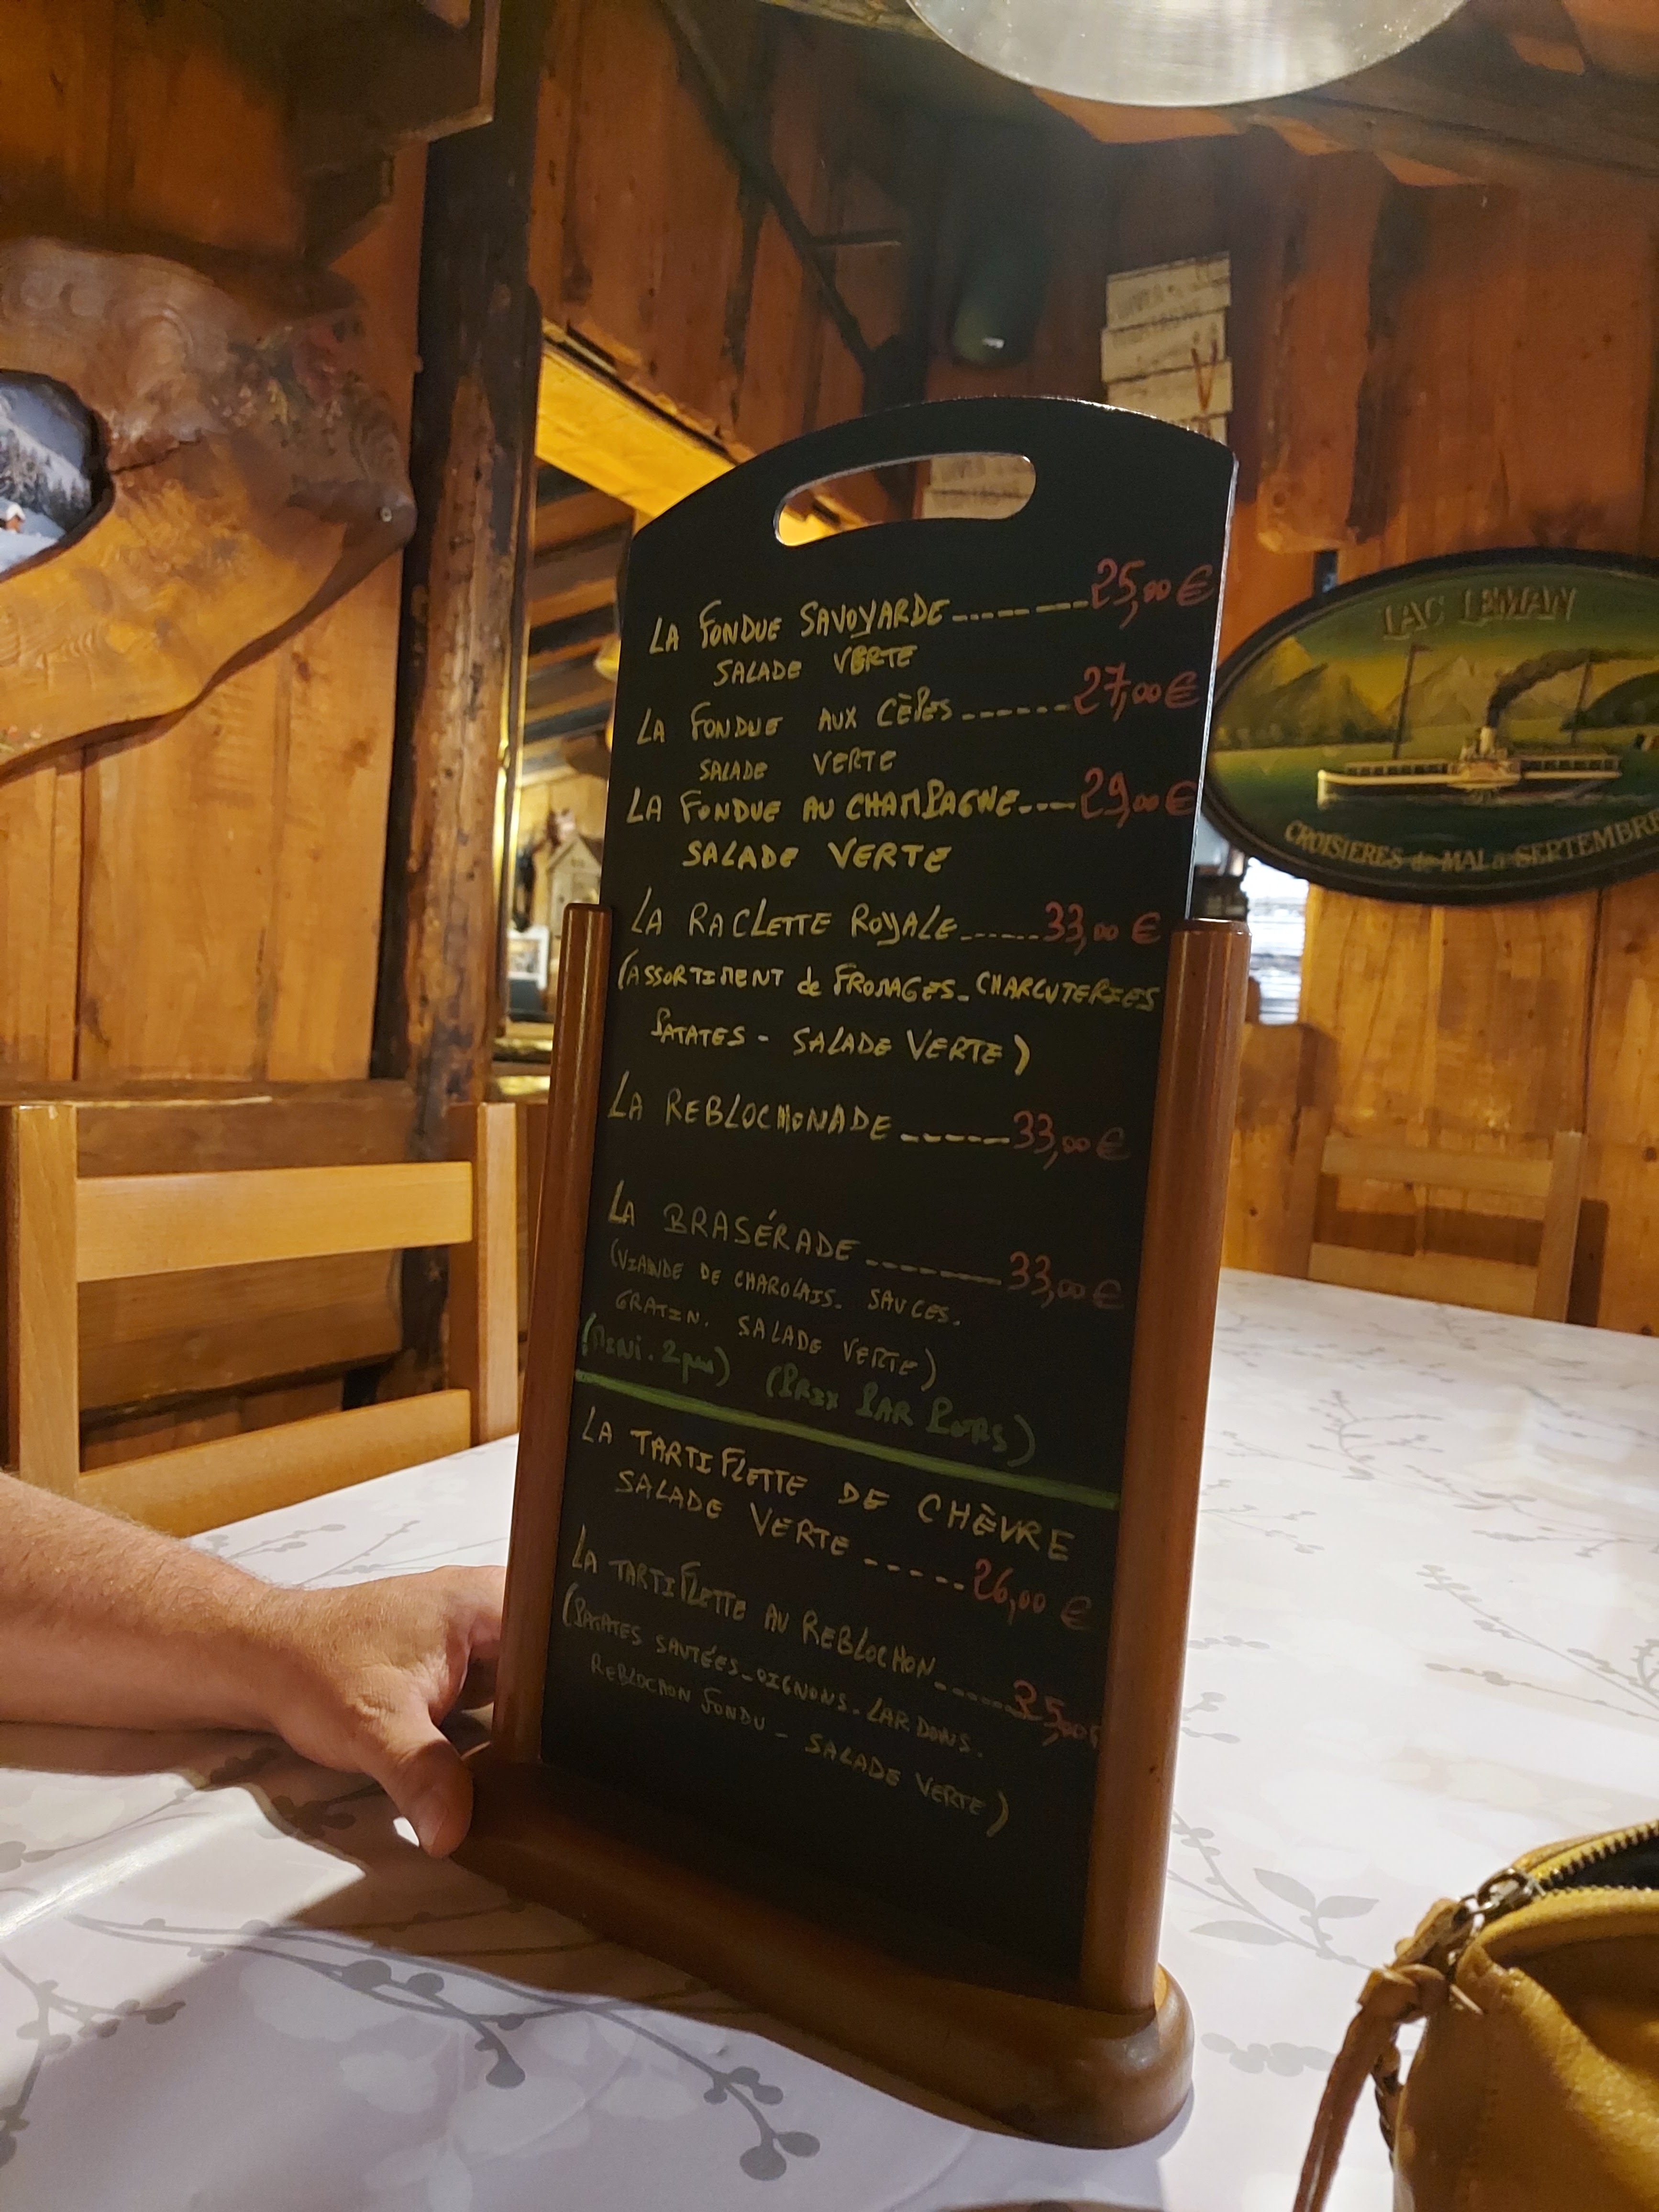 LA FONDUE SAVOYARDE ------- 25,00 €
SALADE VERTE
LA FONDUE AUX CÈPES ------ 27,00 €
SALADE VERTE
LA FONDUE AU CHAMPAGNE ---- 29,00 €
SALADE VERTE
LA RACLETTE ROYALE ------ 33,00 €
(ASSORTIMENT de FROMAGES - CHARCUTERIES
PATATES - SALADE VERTE)
LA REBLOCHONADE ------ 33,00 €
LA BRASÉRADE ------- 33,00 €
(VIANDE DE CHAROLAIS. SAUCES.
GRATIN. SALADE VERTE)
(Mini. 2 pers) (PRIX PAR PERS)
LA TARTIFLETTE DE CHÈVRE
SALADE VERTE ----- 26,00 €
LA TARTIFLETTE AU REBLOCHON ------ 25,00 €
(PATATES SAUTÉES - OIGNONS - LARDONS.
REBLOCHON FONDU - SALADE VERTE)
LAC LEMAN
CROISIERES de MAI a SEPTEMBRE